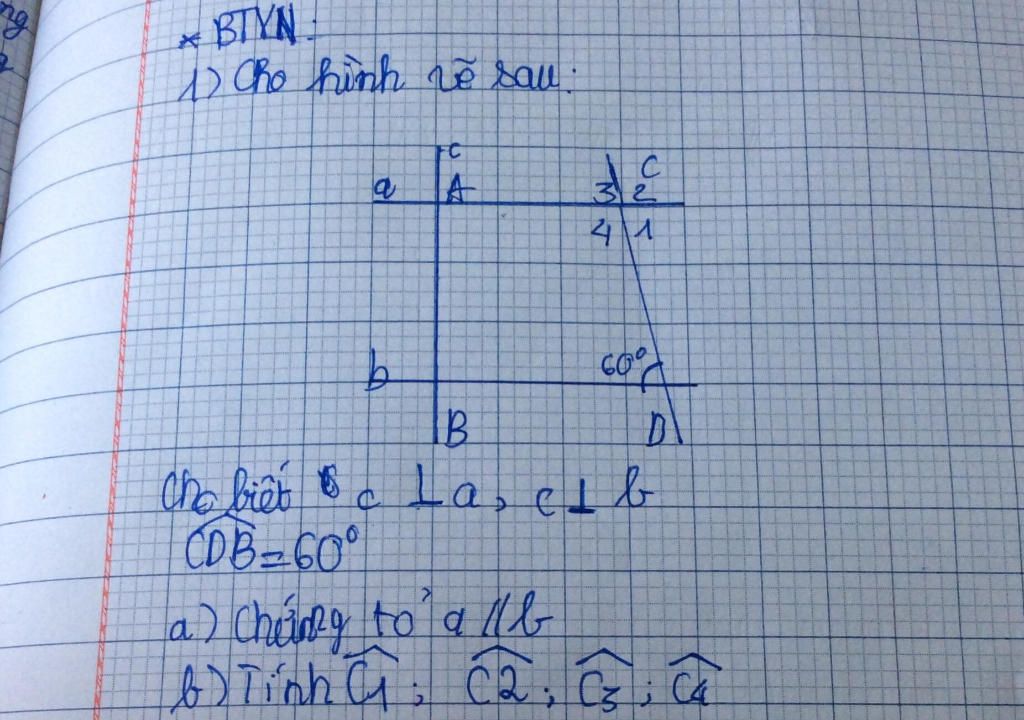 * BTVN:
1) Cho hình vẽ sau:
c
a A 3 2 C
4 1
60°
b
B D
Cho biết c ⊥ a, c ⊥ b
CDB = 60°
a) Chứng tỏ a // b
b) Tính C1; C2; C3; C4